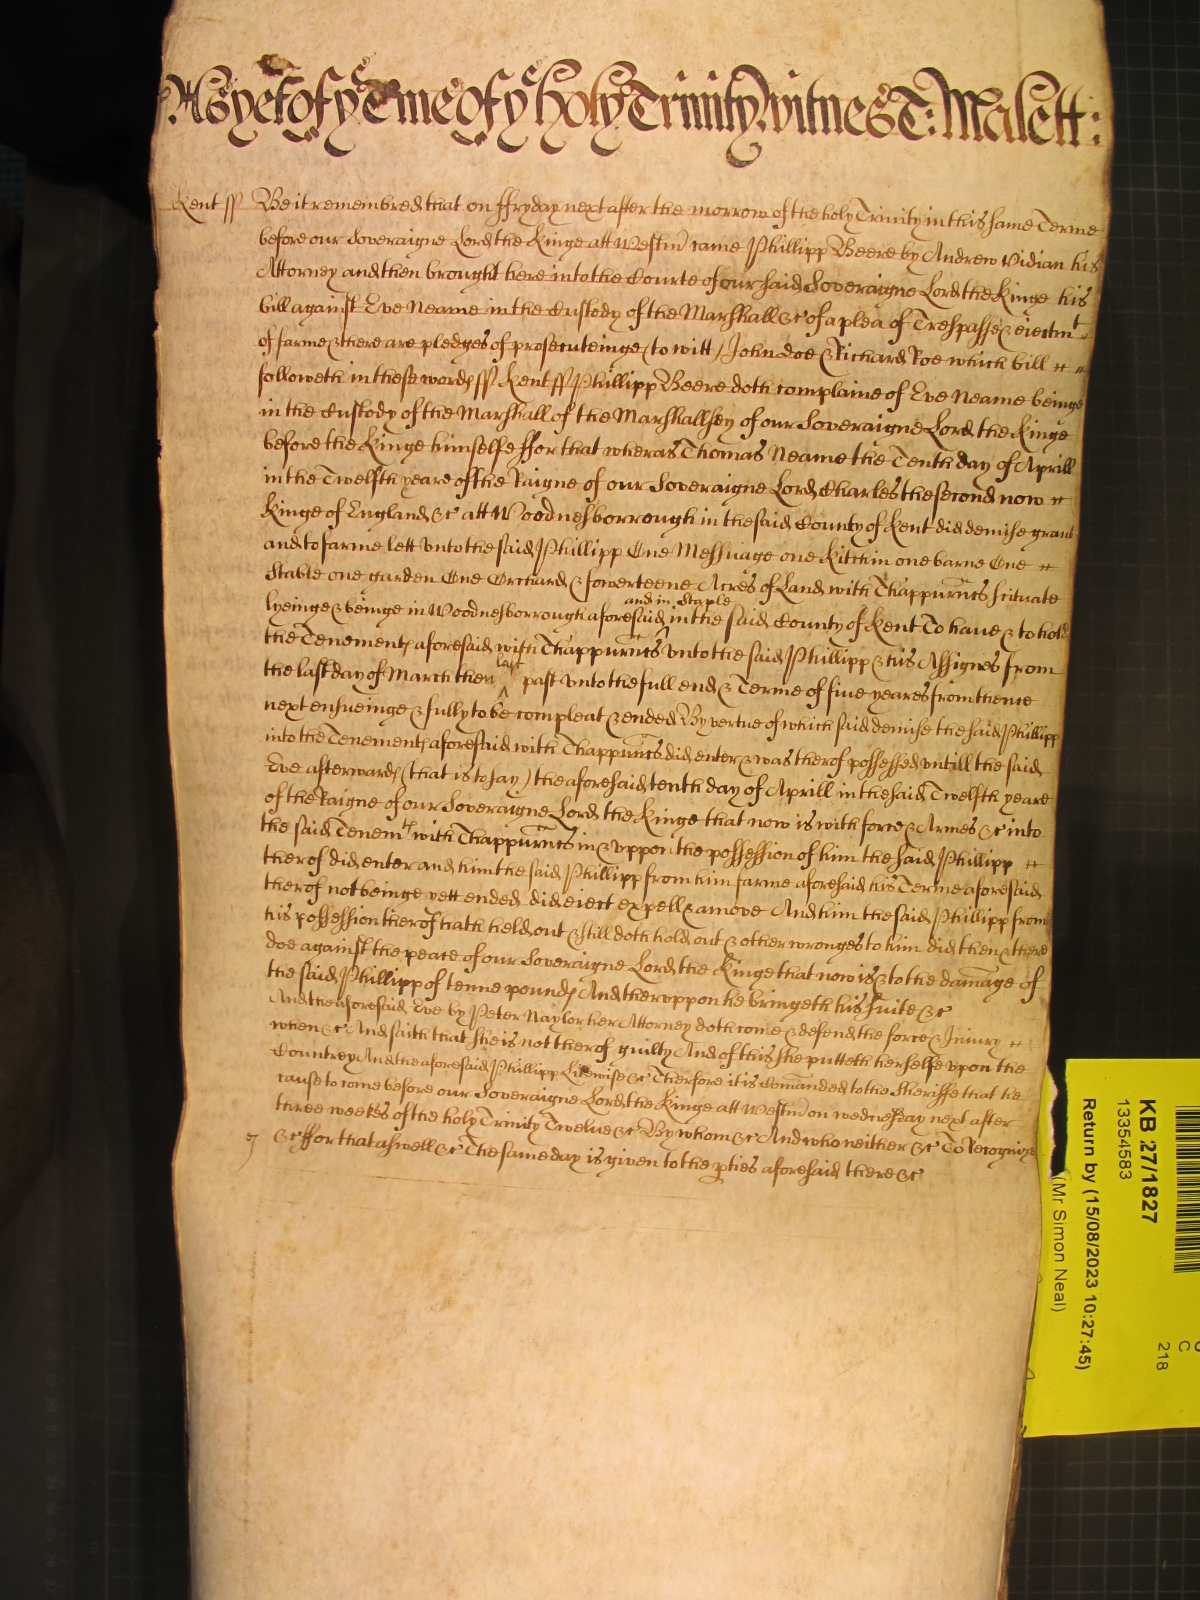 As yet of ye Tme of ye holy Trinity witnes T: Malett:
Kent ss Be it remembred that on ffryday next after the morrow of the holy Trinity in this same Terme
before our Soveraigne Lord the Kinge att Westmr came Phillipp Beere by Andrew Vidian his
Attorney and then brought here into the Courte of our said Soveraigne Lord the Kinge his
bill against Eve Neame in the Custody of the Marshall &c of a plea of Trespasse & eiectmt
of farme & there are pledges of prosecuteinge (to witt) John Doe & Richard Roe which bill
followeth in these words ss Kent ss Phillipp Beere doth complaine of Eve Neame beinge
in the Custody of the Marshall of the Marshallsey of our Soveraigne Lord the Kinge
before the Kinge himselfe ffor that wheras Thomas Neame the Tenth day of Aprill
in the Twelfth yeare of the Raigne of our Soveraigne Lord Charles the second now
Kinge of England &c att Woodnesborrough in the said County of Kent did demise grant
and to farme lett vnto the said Phillipp One Messuage one Kitchin one barne One
Stable one garden One Orchard & fowerteene Acres of Land with Thappurncs scituate
lyeinge & beinge in Woodnesborrough aforesaid and in Staple in the said County of Kent To have & to hold
the Tenements aforesaid with Thappurncs vnto the said Phillipp & his Assignes from
the last day of March then last past vnto the full end & Terme of five yeares from thence
next ensueinge & fully to be compleat & ended By vertue of which said demise the said Phillipp
into the Tenements aforesaid with Thappurncs did enter & was therof possessed vntill the said
Eve afterwards (that is to say) the aforesaid tenth day of Aprill in the said Twelfth yeare
of the Raigne of our Soveraigne Lord the Kinge that now is with force & Armes &c into
the said Tenemts with Thappurncs in & vppon the possession of him the said Phillipp
therof did enter and him the said Phillipp from him farme aforesaid his Terme aforesaid
therof not beinge yett ended did eiect expell & amove And him the said Phillipp from
his possession therof hath held out & still doth hold out & other wronges to him did then & there
doe against the peace of our Soveraigne Lord the Kinge that now is & to the damage of
the said Phillipp of tenne pounds And theruppon he bringeth his suite &c
And the aforesaid Eve by Peter Naylor her Attorney doth come & defend the force & Iniury
when &c And saith that she is not therof guilty And of this she putteth herselfe vpon the
Countrey And the aforesaid Phillipp Likewise &c Therfore it is Comanded to the Sheriffe that he
cause to come before our Soveraigne Lord the Kinge att Westmr on wednesday next after
three weekes of the holy Trinity Twelve &c By whom &c And who neither &c To Recognize
&c ffor that aswell &c The same day is given to the pties aforesaid there &c
KB 27/1827
13354583
Return by (15/08/2023 10:27:45)
(Mr Simon Neal)
C
218